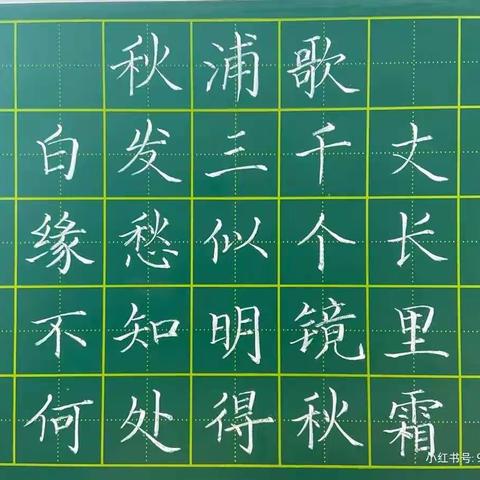 秋浦歌
白发三千丈
缘愁似个长
不知明镜里
何处得秋霜
小红书号: 9